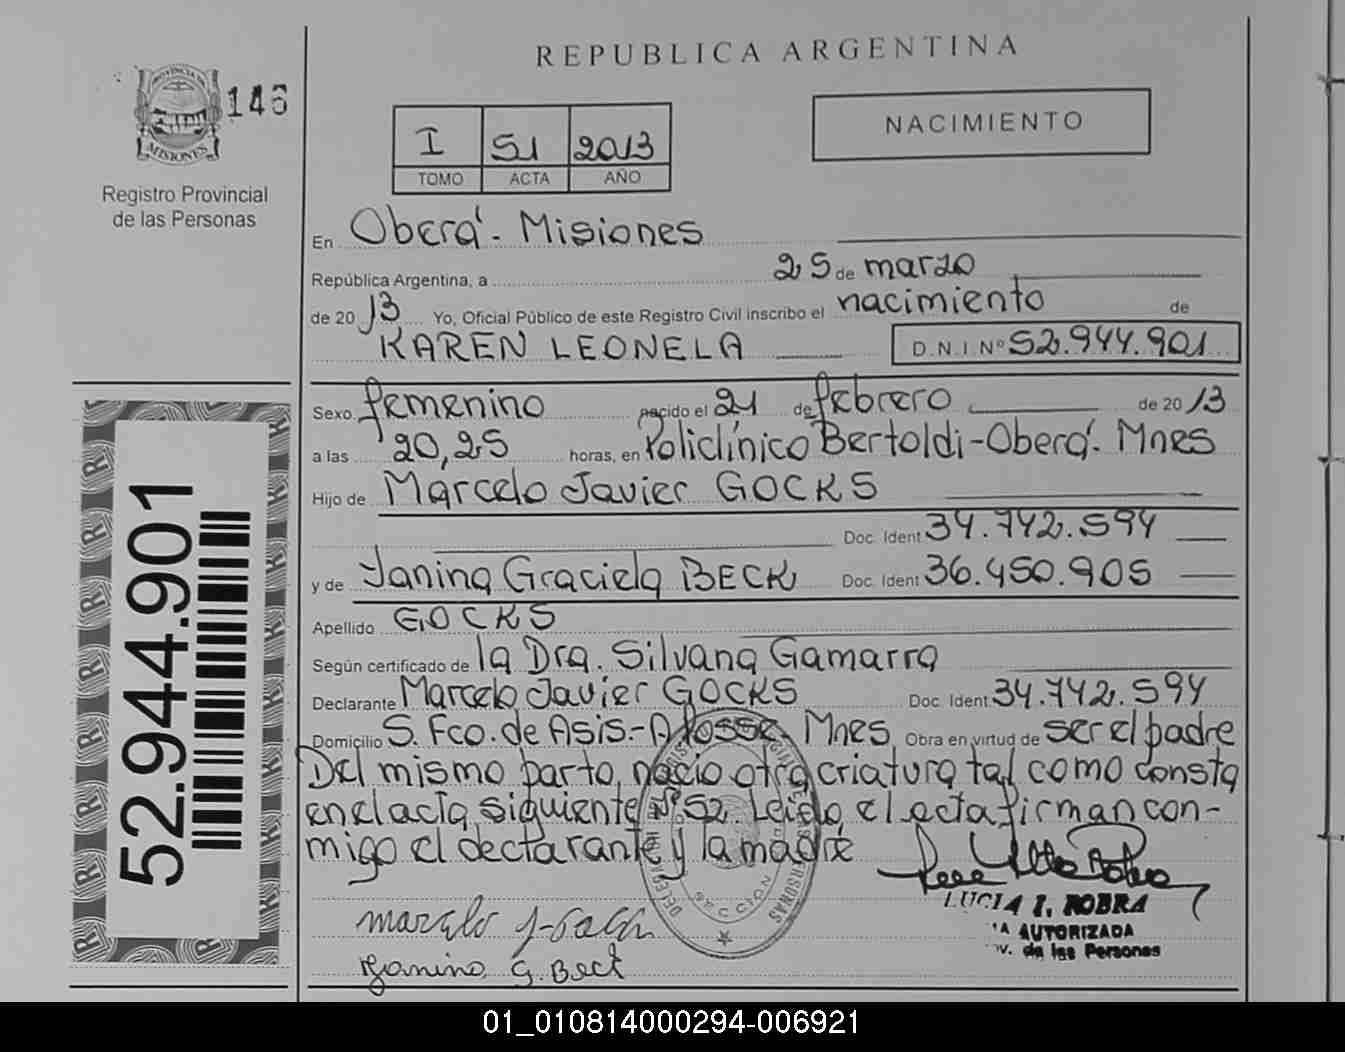 REPUBLICA ARGENTINA
PROVINCIA DE
MISIONES
146
Registro Provincial
de las Personas
I 51 2013
TOMO ACTA AÑO
NACIMIENTO
En Oberá - Misiones
República Argentina, a 25 de marzo
de 20 13 Yo, Oficial Público de este Registro Civil inscribo el nacimiento de
KAREN LEONELA D.N.I. Nº 52.944.901
Sexo femenino nacido el 21 de febrero de 20 13
a las 20,25 horas, en Policlínico Bertoldi-Oberá. Mnes
Hijo de Marcelo Javier GOCKS
Doc. Ident 34.742.594
y de Yanina Graciela BECK Doc. Ident 36.450.905
Apellido GOCKS
Según certificado de la Dra. Silvana Gamarra
Declarante Marcelo Javier GOCKS Doc. Ident 34.742.594
Domicilio S. Fco. de Asis.- A. Posse- Mnes Obra en virtud de ser el padre
Del mismo parto, nació otra criatura tal como consta
en el acta siguiente Nº 52. Leido el acta firman con-
migo el declarante y la madre
LUCIA I. ROBRA
AUTORIZADA
de las Personas
Yanina G. Beck
52.944.901
01_010814000294-006921